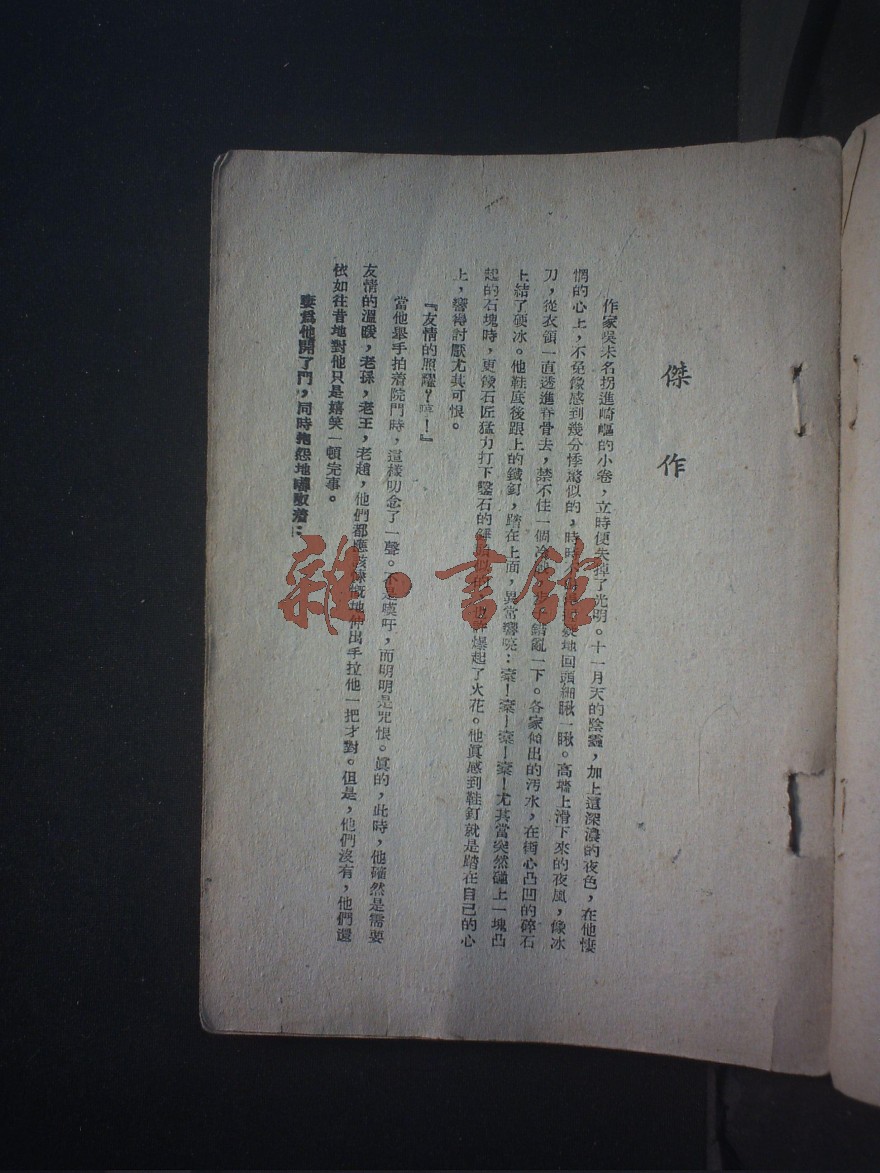 傑作
作家吳未名拐進崎嶇的小巷，立時便失掉了光明。十一月天的陰霾，加上這深濃的夜色，在他悽
惘的心上，不免像感到幾分悸驚似的，時時地回頭細瞅一瞅。高墻上滑下來的夜風，像冰
刀，從衣領一直透進脊骨去，禁不住一個冷錯亂一下。各家傾出的汚水，在街心凸凹的碎石
上結了硬冰。他鞋底後跟上的鐵釘，踏在上面，異常響亮：槖！槖！槖！槖！尤其當突然碰上一塊凸
起的石塊時，更像石匠猛力打下鑿石的錘爆起了火花。他眞感到鞋釘就是踏在自己的心
上，響得討厭尤其可恨。
『友情的照耀？哼！』
當他舉手拍着院門時，這樣叨念了一聲。不是嘆吁，而明明是咒恨。眞的，此時，他確然是需要
友情的溫暖，老孫，老王，老趙，他們都應該慷慨地伸出手拉他一把才對。但是，他們沒有，他們還
依如往昔地對他只是嬉笑一頓完事。
妻爲他開了門，同時抱怨地嘟敢着：
雜·書館